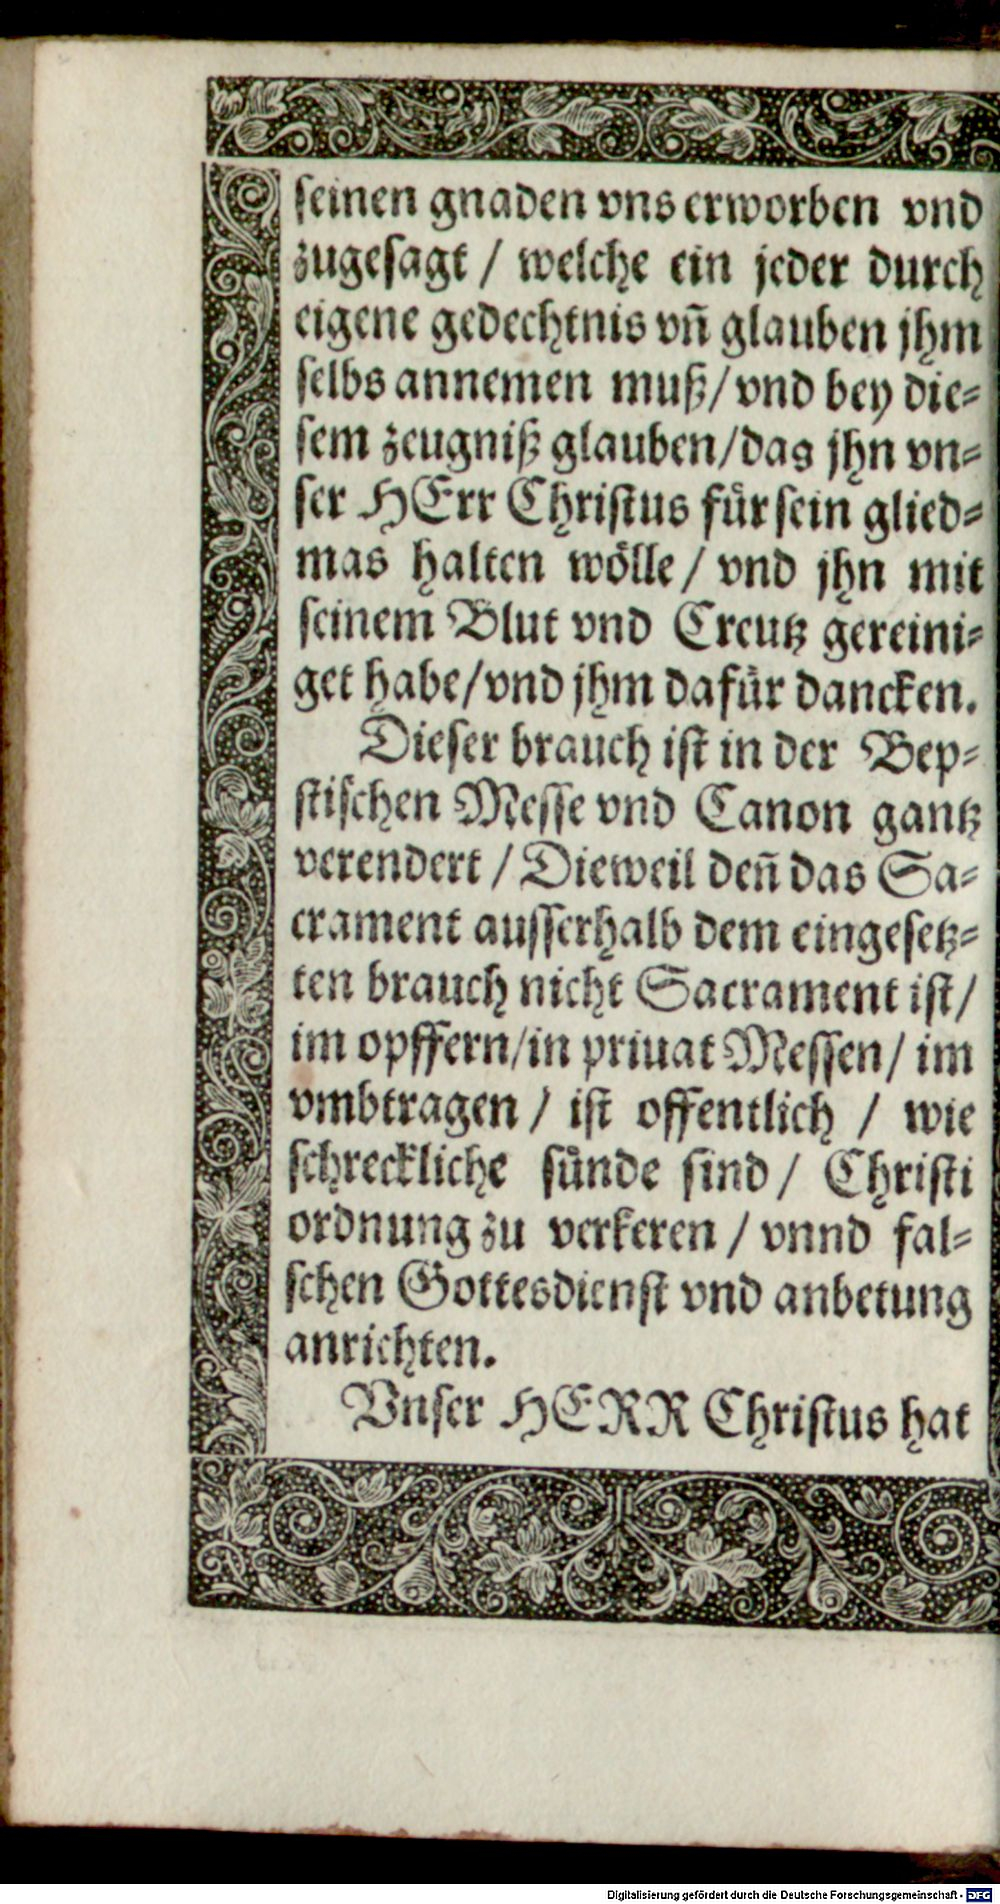 seinen gnaden vns erworben vnd
zugesagt / welche ein jeder durch
eigene gedechtnis vñ glauben jhm
selbs annemen muß/ vnd bey die⸗
sem zeugniß glauben/das jhn vn⸗
ser HErr Christus für sein glied⸗
mas halten wölle / vnd jhn mit
seinem Blut vnd Creutz gereini⸗
get habe/vnd jhm dafür dancken.
Dieser brauch ist in der Bep⸗
stischen Messe vnd Canon gantz
verendert / Dieweil deñ das Sa⸗
crament ausserhalb dem eingesetz⸗
ten brauch nicht Sacrament ist/
im opffern/in priuat Messen/ im
vmbtragen / ist offentlich / wie
schreckliche sünde sind / Christi
ordnung zu verkeren / vnnd fal⸗
schen Gottesdienst vnd anbetung
anrichten.
Vnser HERR Christus hat
Digitalisierung gefördert durch die Deutsche Forschungsgemeinschaft - DFG